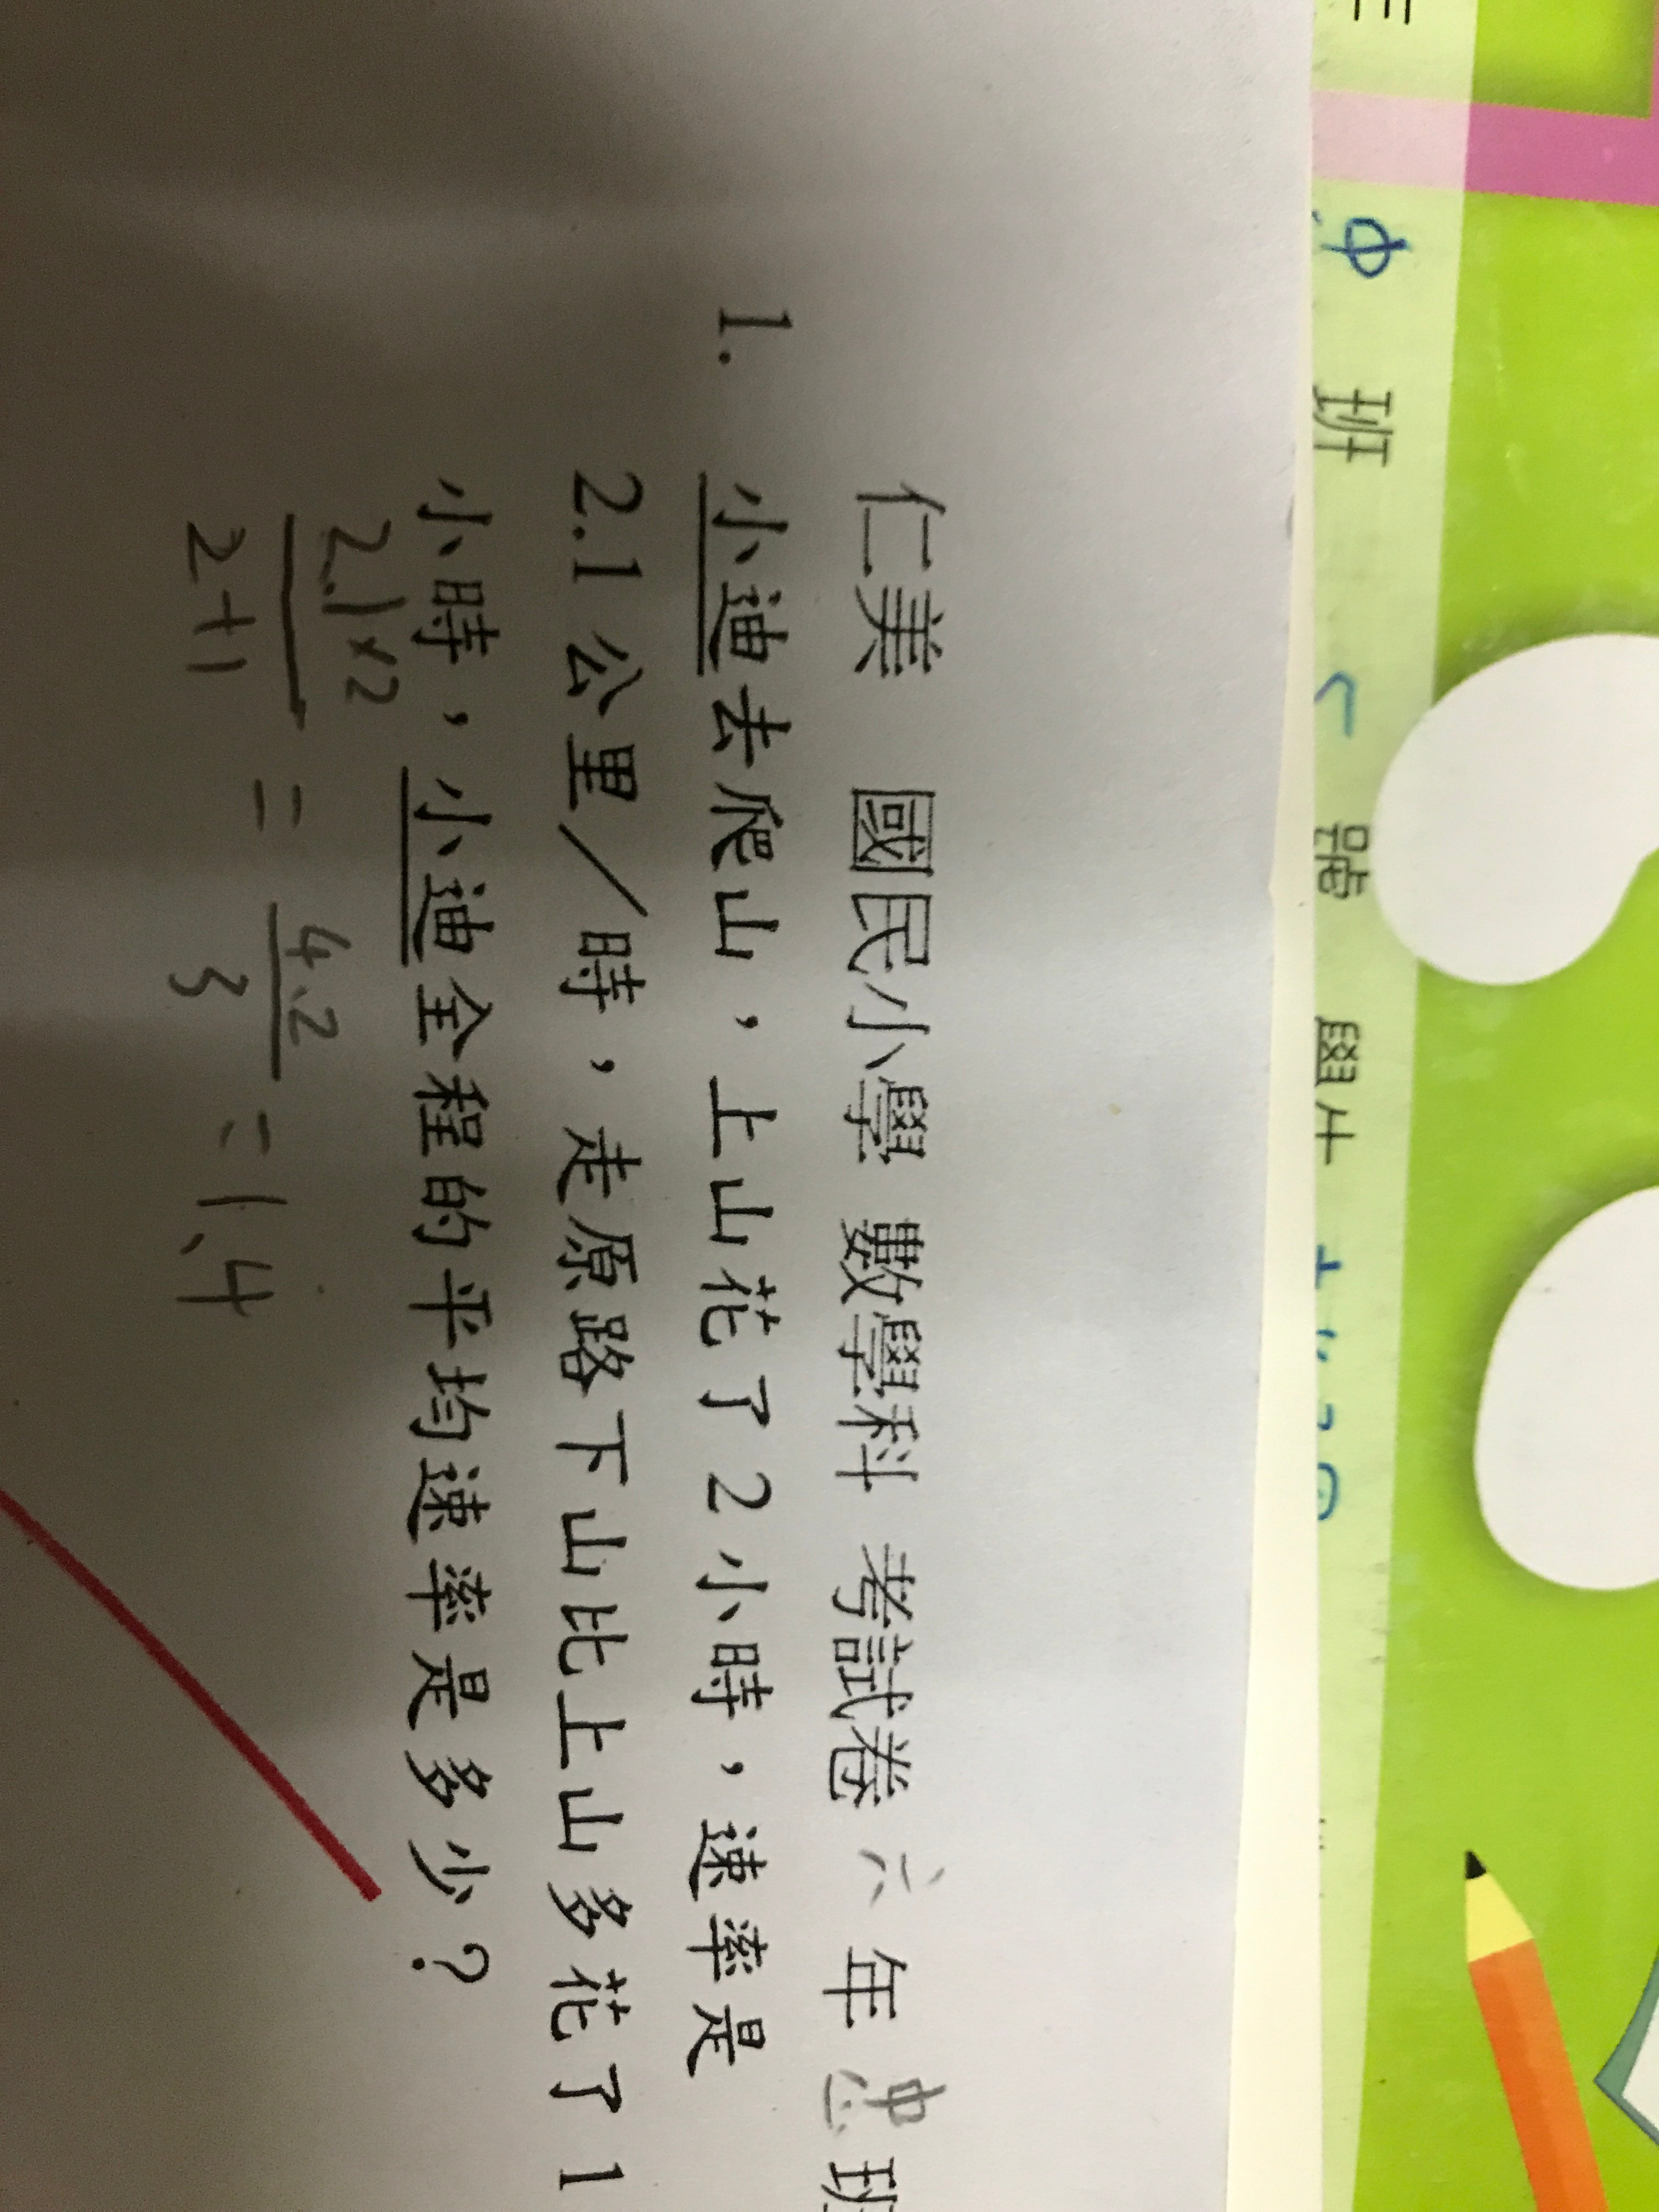 班 號 學生
仁美 國民小學 數學科 考試卷 六 年 忠 班
1. 小迪去爬山，上山花了2小時，速率是
2.1公里／時，走原路下山比上山多花了1
小時，小迪全程的平均速率是多少？
2.1×2/2+1 = 4.2/3 = 1.4